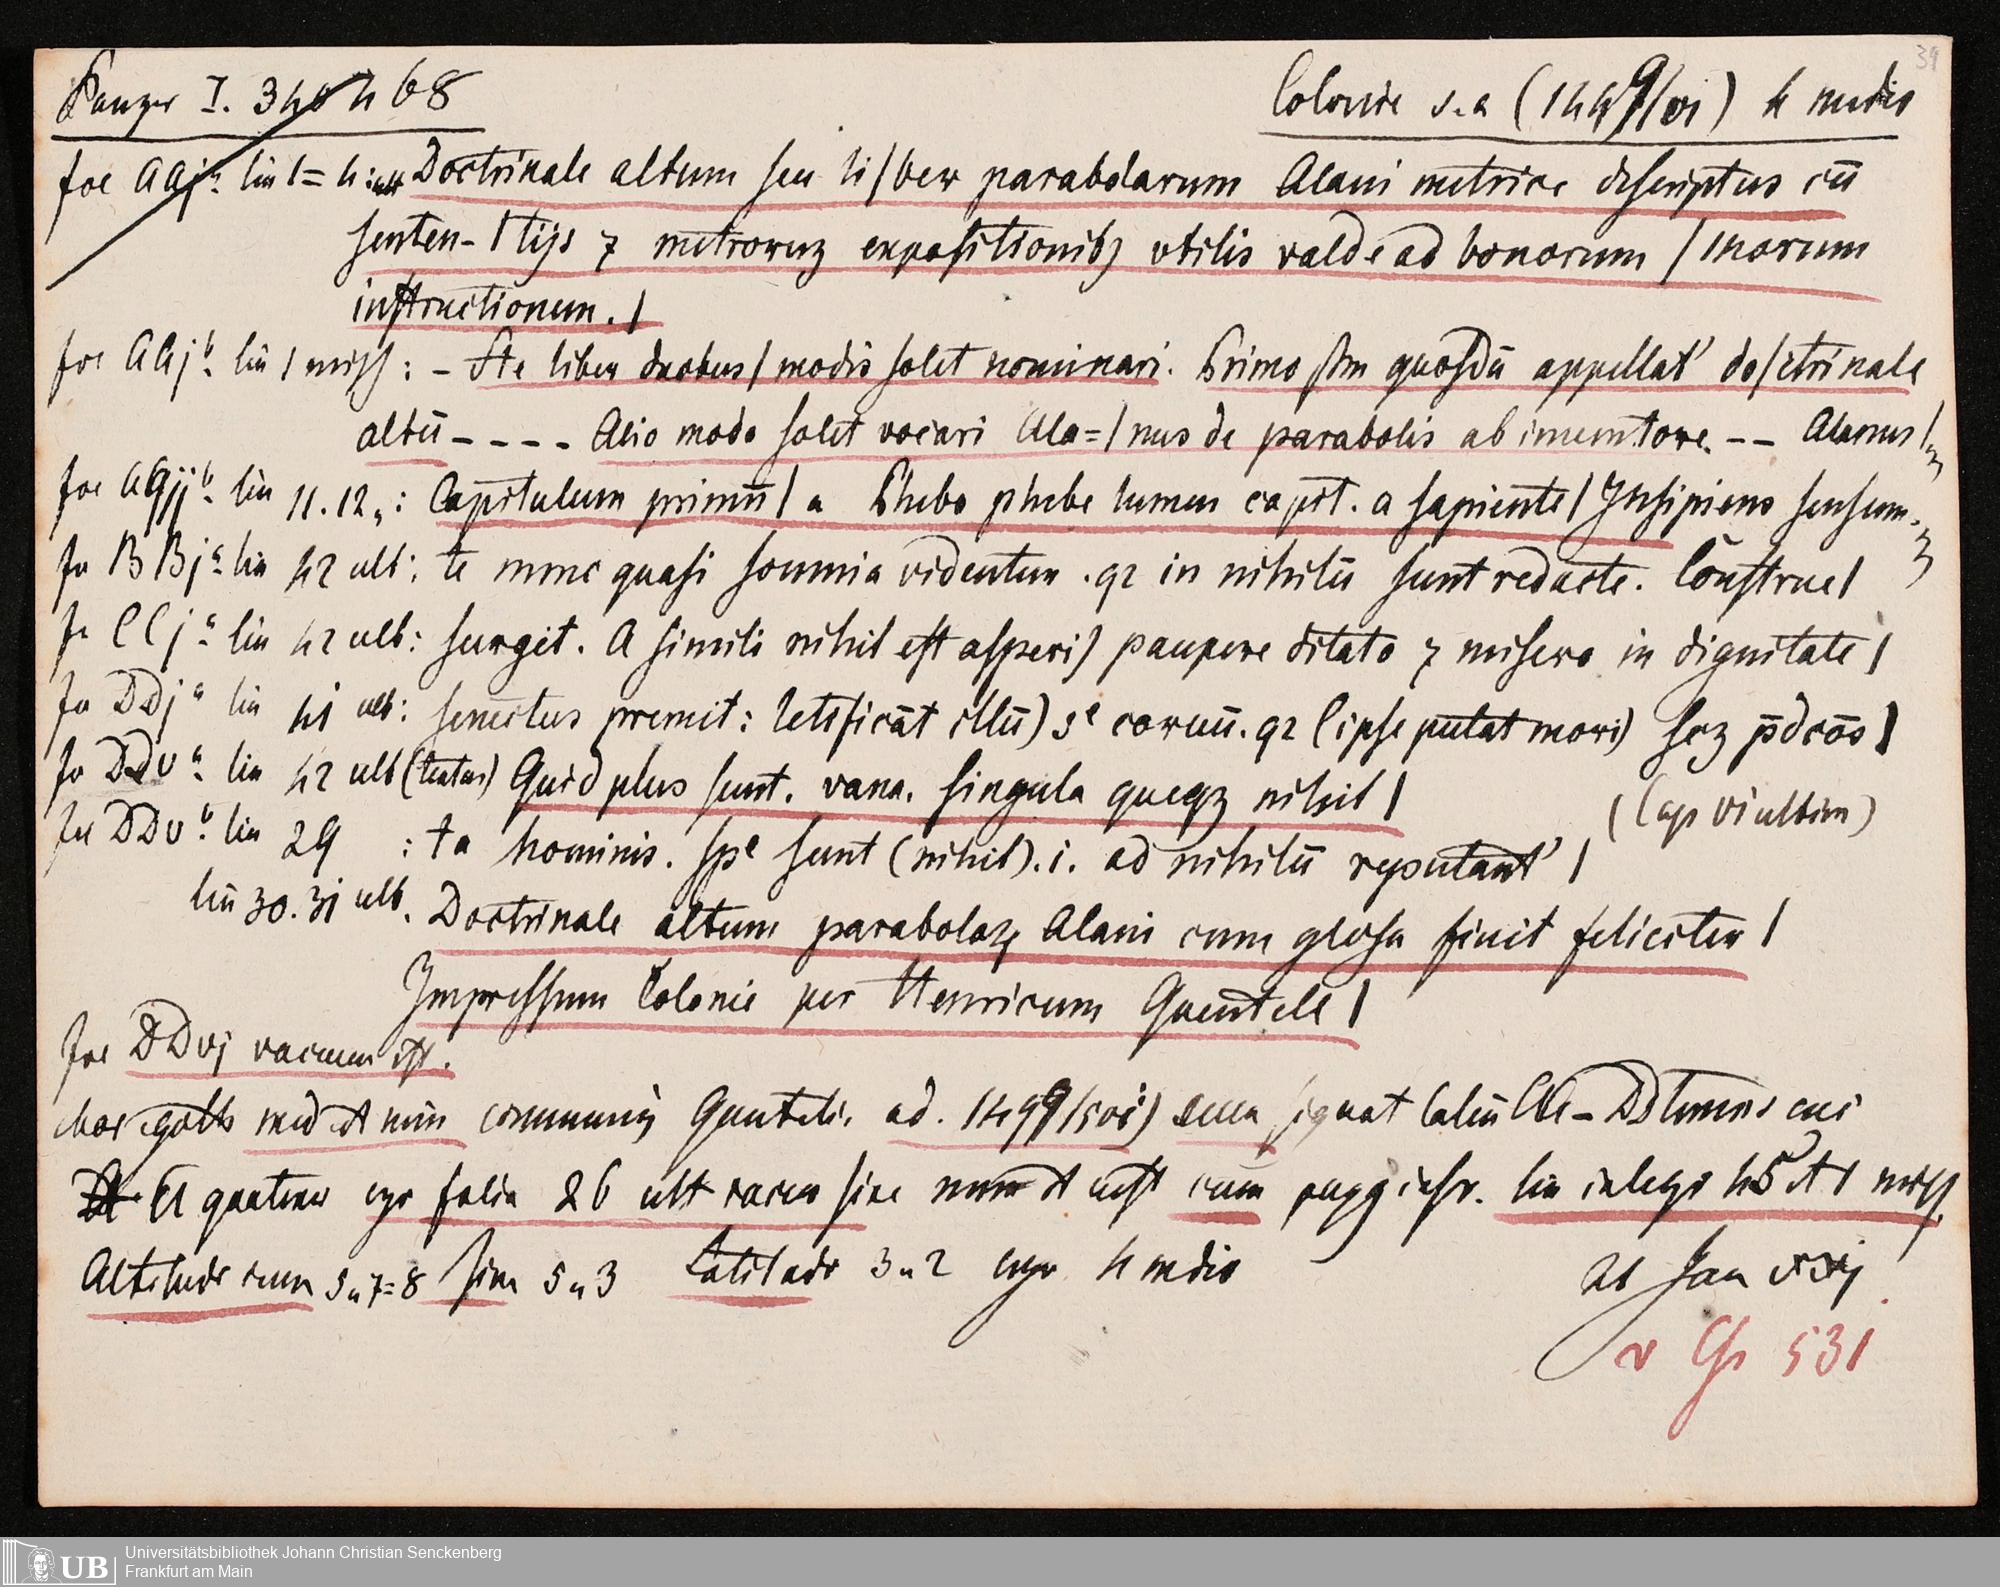 39
Panzer I. 340 h 68
Colonie s.a (1499/vi) h medio
fol AAj a lin 1=4: Doctrinale altum seu li/ber parabolarum Alani metrice descriptus cū
senten-/tijs ⁊ metrorūꝫ expositionibꝫ vtilis valde ad bonorum / morum
instructionem./
fol AAj b lin 1 miss: - Ste liber duobus/modis solet nominari. Primo ſm quosdā appellat' do/ctrinale
altū - - - - Alio modo solet vocari Ala=/nus de parabolis ab inuentore. -- Alanus/
fol AAjj b lin 11.12,: Capitulum primū/ a Phebo phebe lumen capit. a sapiente/Insipiens sensum.
fo BBj a lin 42 ult: te nunc quasi somnia videntur .qꝛ in nihilū sunt redacte. Cōstrue/
fo CCj a lin 42 ult: surgit. A simili nihil est asperi) paupere ditato ⁊ misero in dignitate/
fo DDj a lin 41 ult: senectus premit: letificāt illū) sᵉ coruū. qꝛ (ipse putat mori) scꝫ p̄dcōs/
fo DDv a lin 42 ult (textus) Quid plus sunt. vana. singula queqꝫ nihil/
(Cap vi ultim)
fol DDv b lin 29 : ta hominis. spᵉ sunt (nihil).i. ad nihilū reputant'/
lin 30.31 ult. Doctrinale altum parabolaꝝ Alani cum glosa finit feliciter/
Impressum Colonie per Henricum Quentell/
fol DDvj vacuum est.
char goth med et min communis Quentel. ad. 1499/ signat
quatern ego folia 26 ult vacuo sine num et cust cum pagg inscr. lin integr 45 et 1 miss.
Altitudo cum 5 „ 7=8 sine 5 „ 3 Latitudo 3 „ 2 ergo h medio
Jan
v Gs 531
UB
Universitätsbibliothek Johann Christian Senckenberg
Frankfurt am Main